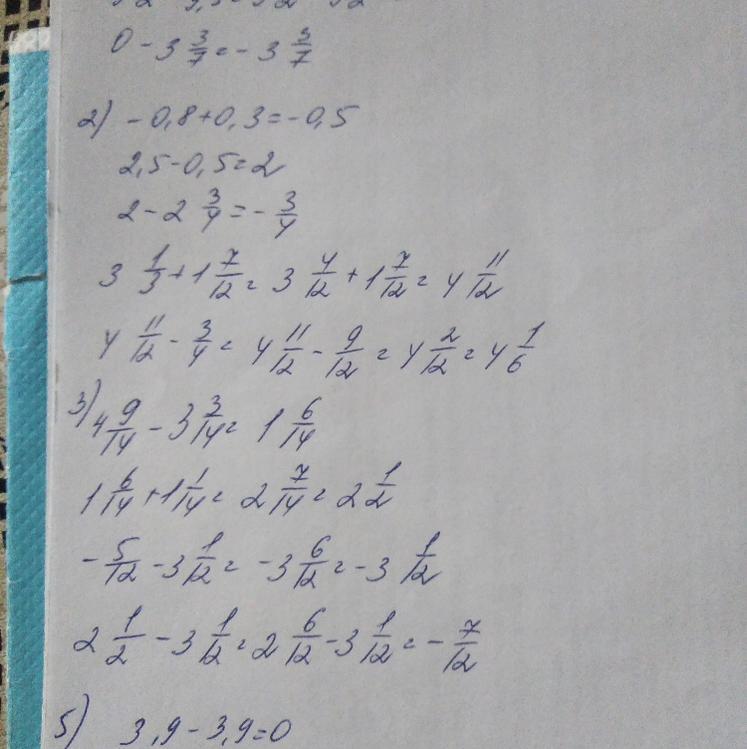 0 - 3 3/7 = - 3 3/7
2) - 0,8 + 0,3 = - 0,5
2,5 - 0,5 = 2
2 - 2 3/4 = - 3/4
3 1/3 + 1 7/12 = 3 4/12 + 1 7/12 = 4 11/12
4 11/12 - 3/4 = 4 11/12 - 9/12 = 4 2/12 = 4 1/6
3) 4 9/14 - 3 3/14 = 1 6/14
1 6/14 + 1 1/14 = 2 7/14 = 2 1/2
- 5/12 - 3 1/12 = - 3 6/12 = - 3 1/2
2 1/2 - 3 1/12 = 2 6/12 - 3 1/12 = - 7/12
5) 3,9 - 3,9 = 0